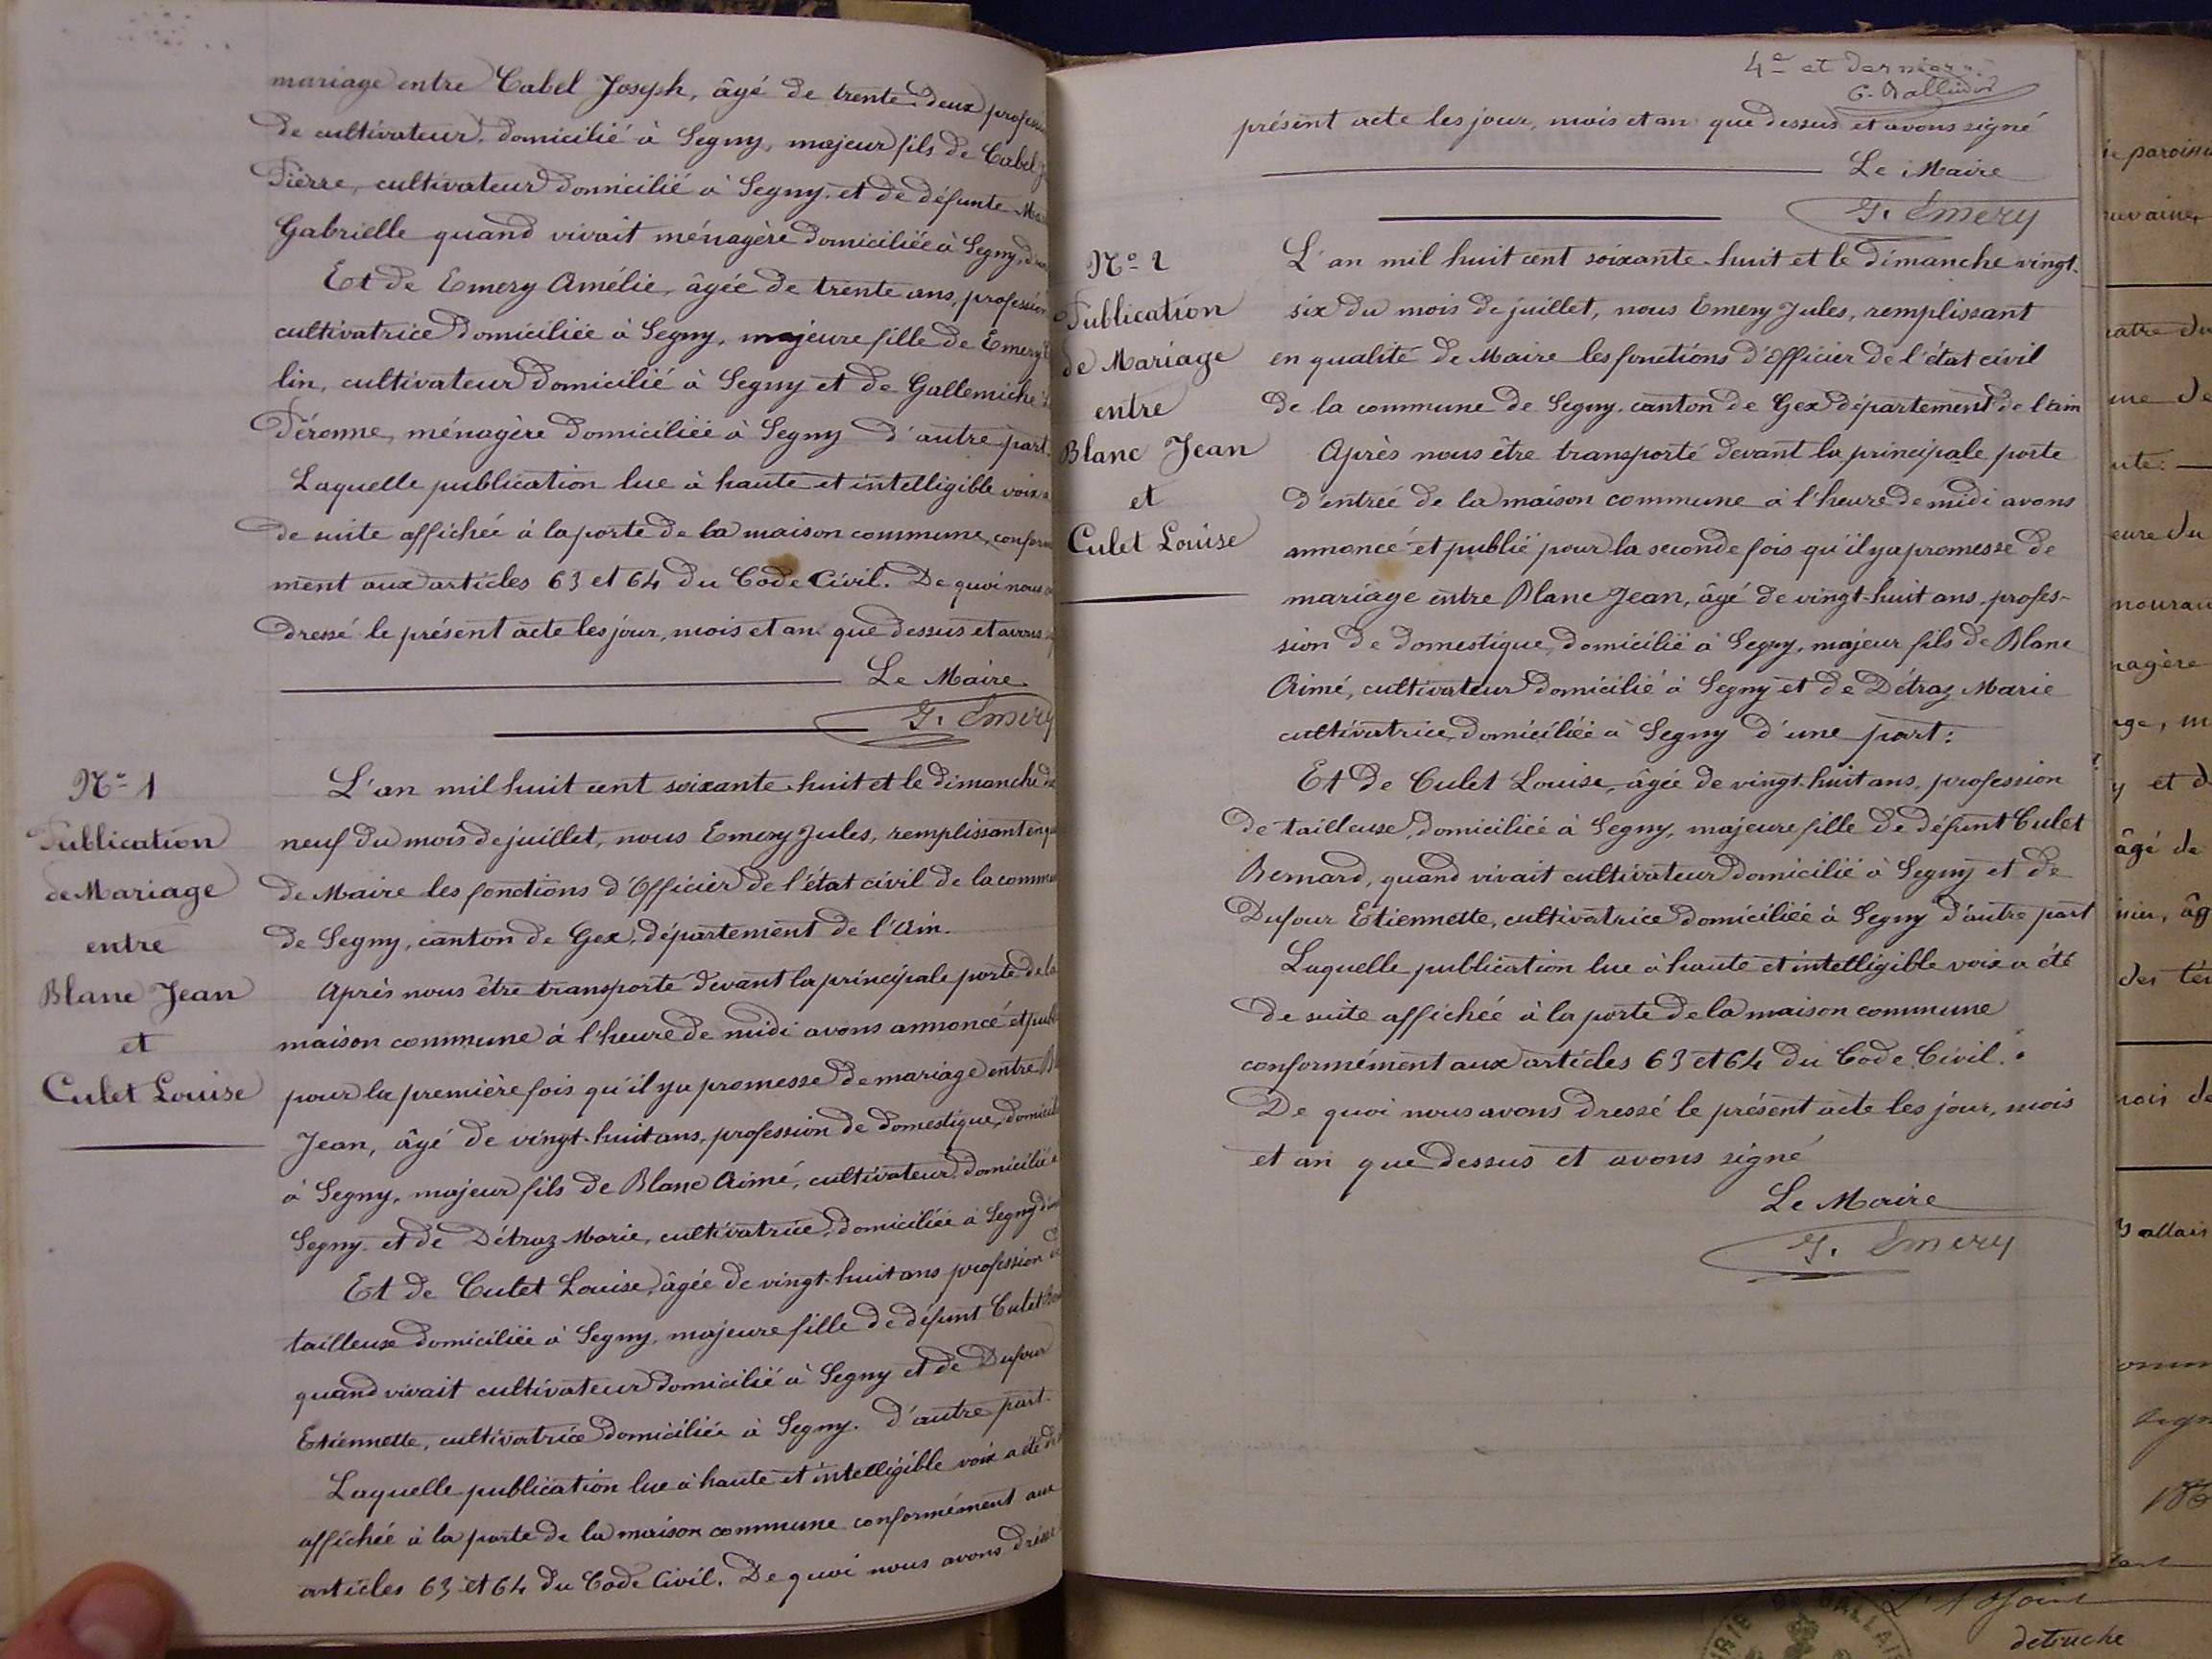 mariage entre Cabel Joseph, âgé de trente-deux
de cultivateur, domicilié à Segny, majeur fils de Cabel
Pierre, cultivateur domicilié à Segny, et de défunte
Gabrielle quand vivait ménagère domiciliée à Segny,
Et de Emery Amélie, âgée de trente ans, profession
cultivatrice domiciliée à Segny, majeure fille de Emery
lin, cultivateur domicilié à Segny et de Gallemiche
Péronne, ménagère domiciliée à Segny d'autre part.
Laquelle publication lue à haute et intelligible voix a
de suite affichée à la porte de la maison commune, confor
ment aux articles 63 et 64 du Code Civil. De quoi nous
dressé le présent acte les jour, mois et an que dessus et avons
Le Maire
J. Emery
No. 1
Publication
de Mariage
entre
Blanc Jean
et
Culet Louise
L'an mil huit cent soixante-huit et le dimanche
neuf du mois de juillet, nous Emery Jules, remplissant en
de Maire les fonctions d'Officier de l'état civil de la comm
de Segny, canton de Gex, département de l'Ain.
Après nous être transporté devant la principale porte de la
maison commune à l'heure de midi avons annoncé et publ
pour la première fois qu'il y a promesse de mariage entre
Jean, âgé de vingt-huit ans, profession de domestique, domicil
à Segny, majeur fils de Blanc Aimé, cultivateur domicilié à
Segny et de Détraz Marie, cultivatrice, domiciliée à Segny
Et de Culet Louise, âgée de vingt-huit ans profession
tailleuse domiciliée à Segny, majeure fille de défunt Culet
quand vivait cultivateur domicilié à Segny et de Dufour
Etiennette, cultivatrice domiciliée à Segny. d'autre part.
Laquelle publication lue à haute et intelligible voix a été
affichée à la porte de la maison commune conformément aux
articles 63 et 64 du Code Civil. De quoi nous avons dressé
4e et dernier
présent acte les jour, mois et an que dessus et avons signé
Le Maire
J. Emery
No. 2
Publication
de Mariage
entre
Blanc Jean
et
Culet Louise
L'an mil huit cent soixante-huit et le dimanche vingt-
six du mois de juillet, nous Emery Jules, remplissant
en qualité de Maire les fonctions d'Officier de l'état civil
de la commune de Segny, canton de Gex département de l'Ain
Après nous être transporté devant la principale porte
d'entrée de la maison commune à l'heure de midi avons
annoncé et publié pour la seconde fois qu'il y a promesse de
mariage entre Blanc Jean, âgé de vingt-huit ans, profes-
sion de domestique, domicilié à Segny, majeur fils de Blanc
Aimé, cultivateur domicilié à Segny et de Détraz Marie
cultivatrice, domiciliée à Segny d'une part:
Et de Culet Louise, âgée de vingt-huit ans, profession
de tailleuse, domiciliée à Segny, majeure fille de défunt Culet
Bernard, quand vivait cultivateur domicilié à Segny et de
Dufour Etiennette, cultivatrice domiciliée à Segny d'autre part
Laquelle publication lue à haute et intelligible voix a été
de suite affichée à la porte de la maison commune
conformément aux articles 63 et 64 du Code Civil.
De quoi nous avons dressé le présent acte les jour, mois
et an que dessus et avons signé
Le Maire
J. Emery
âgé de